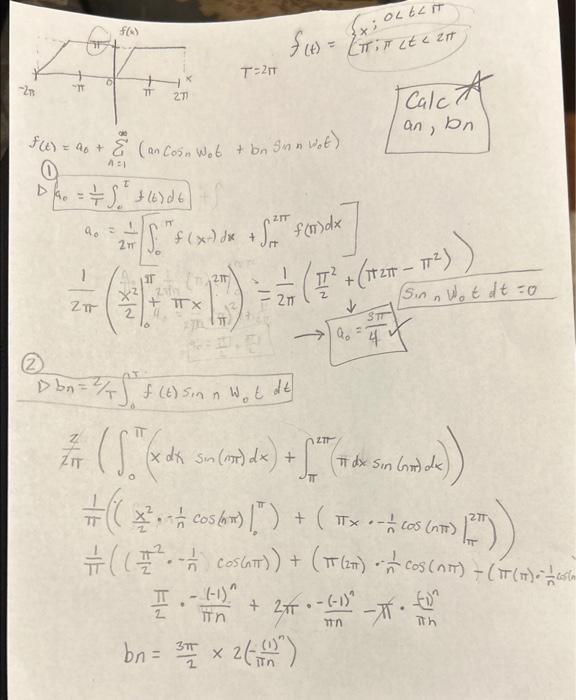 f(x)
π
-2π -π 0 π 2π x
T=2π
f(t) = { x; 0<t<π
π; π<t<2π
Calc
an, bn
f(t) = a₀ + ∞Σn=1 (an cos n W₀t + bn sin n W₀t)
①
▷ a₀ = 1/T ∫₀^T f(t) dt
a₀ = 1/2π [ ∫₀^π f(x) dx + ∫π^2π f(π) dx ]
1/2π ( x²/2 |₀^π + πx |π^2π ) = 1/2π ( π²/2 + (π2π - π²) )
Sin n W₀ t dt = 0
→ a₀ = 3π/4 ✓
②
▷ bn = 2/T ∫₀^T f(t) sin n W₀ t dt
2/2π ( ∫₀^π (x dx sin(nπ) dx) + ∫π^2π (π dx sin(nπ) dx) )
1/π ( ( x²/2 · -1/n cos(nπ) |₀^π ) + ( πx · -1/n cos(nπ) |π^2π ) )
1/π ( ( π²/2 · -1/n cos(nπ) ) + (π(2π) · -1/n cos(nπ) - (π(π) · -1/n cos(n
π/2 · -(-1)ⁿ/πn + 2π · -(-1)ⁿ/πn - π · (-1)ⁿ/πn
bn = 3π/2 × 2(-(1)ⁿ/πn)